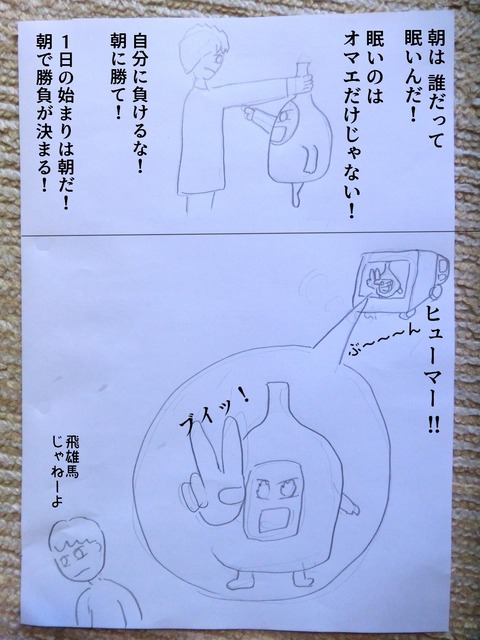 朝は 誰だって
眠いんだ！
眠いのは
オマエだけじゃない！
自分に負けるな！
朝に勝て！
１日の始まりは朝だ！
朝で勝負が決まる！
ヒューマー!!
ぶ〜〜〜〜ん
ブイッ！
飛雄馬
じゃねーよ